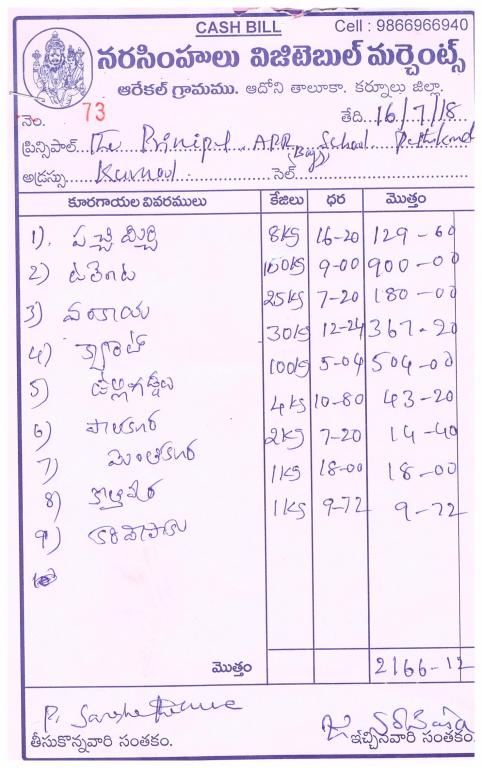 CASH BILL Cell : 9866966940
నరసింహలు విజిటెబుల్ మర్చెంట్స్
ఆరేకల్ గ్రామము. ఆదోని తాలూకా. కర్నూలు జిల్లా.
నెం. 73 తేది. 16/7/18
ప్రిన్సిపాల్ The APR (Boys) School
అడ్రస్సు Kurnool సెల్
కూరగాయల వివరములు కేజిలు ధర మొత్తం
1). పచ్చిమిర్చి 8KG 16-20 129-60
2) టమోట 100KG 9-00 900-00
3) వంకాయ 25KG 7-20 180-00
4) క్యారెట్ 30KG 12-24 367-20
5) ఉల్లిగడ్డలు 100KG 5-04 504-00
6) పాలకూర 4KG 10-80 43-20
7) మెంతికూర 2KG 7-20 14-40
8) కొత్తిమీర 1KG 18-00 18-00
9) కరివేపాకు 1KG 9-72 9-72
మొత్తం 2166-12
తీసుకొన్నవారి సంతకం. ఇచ్చినవారి సంతకం.